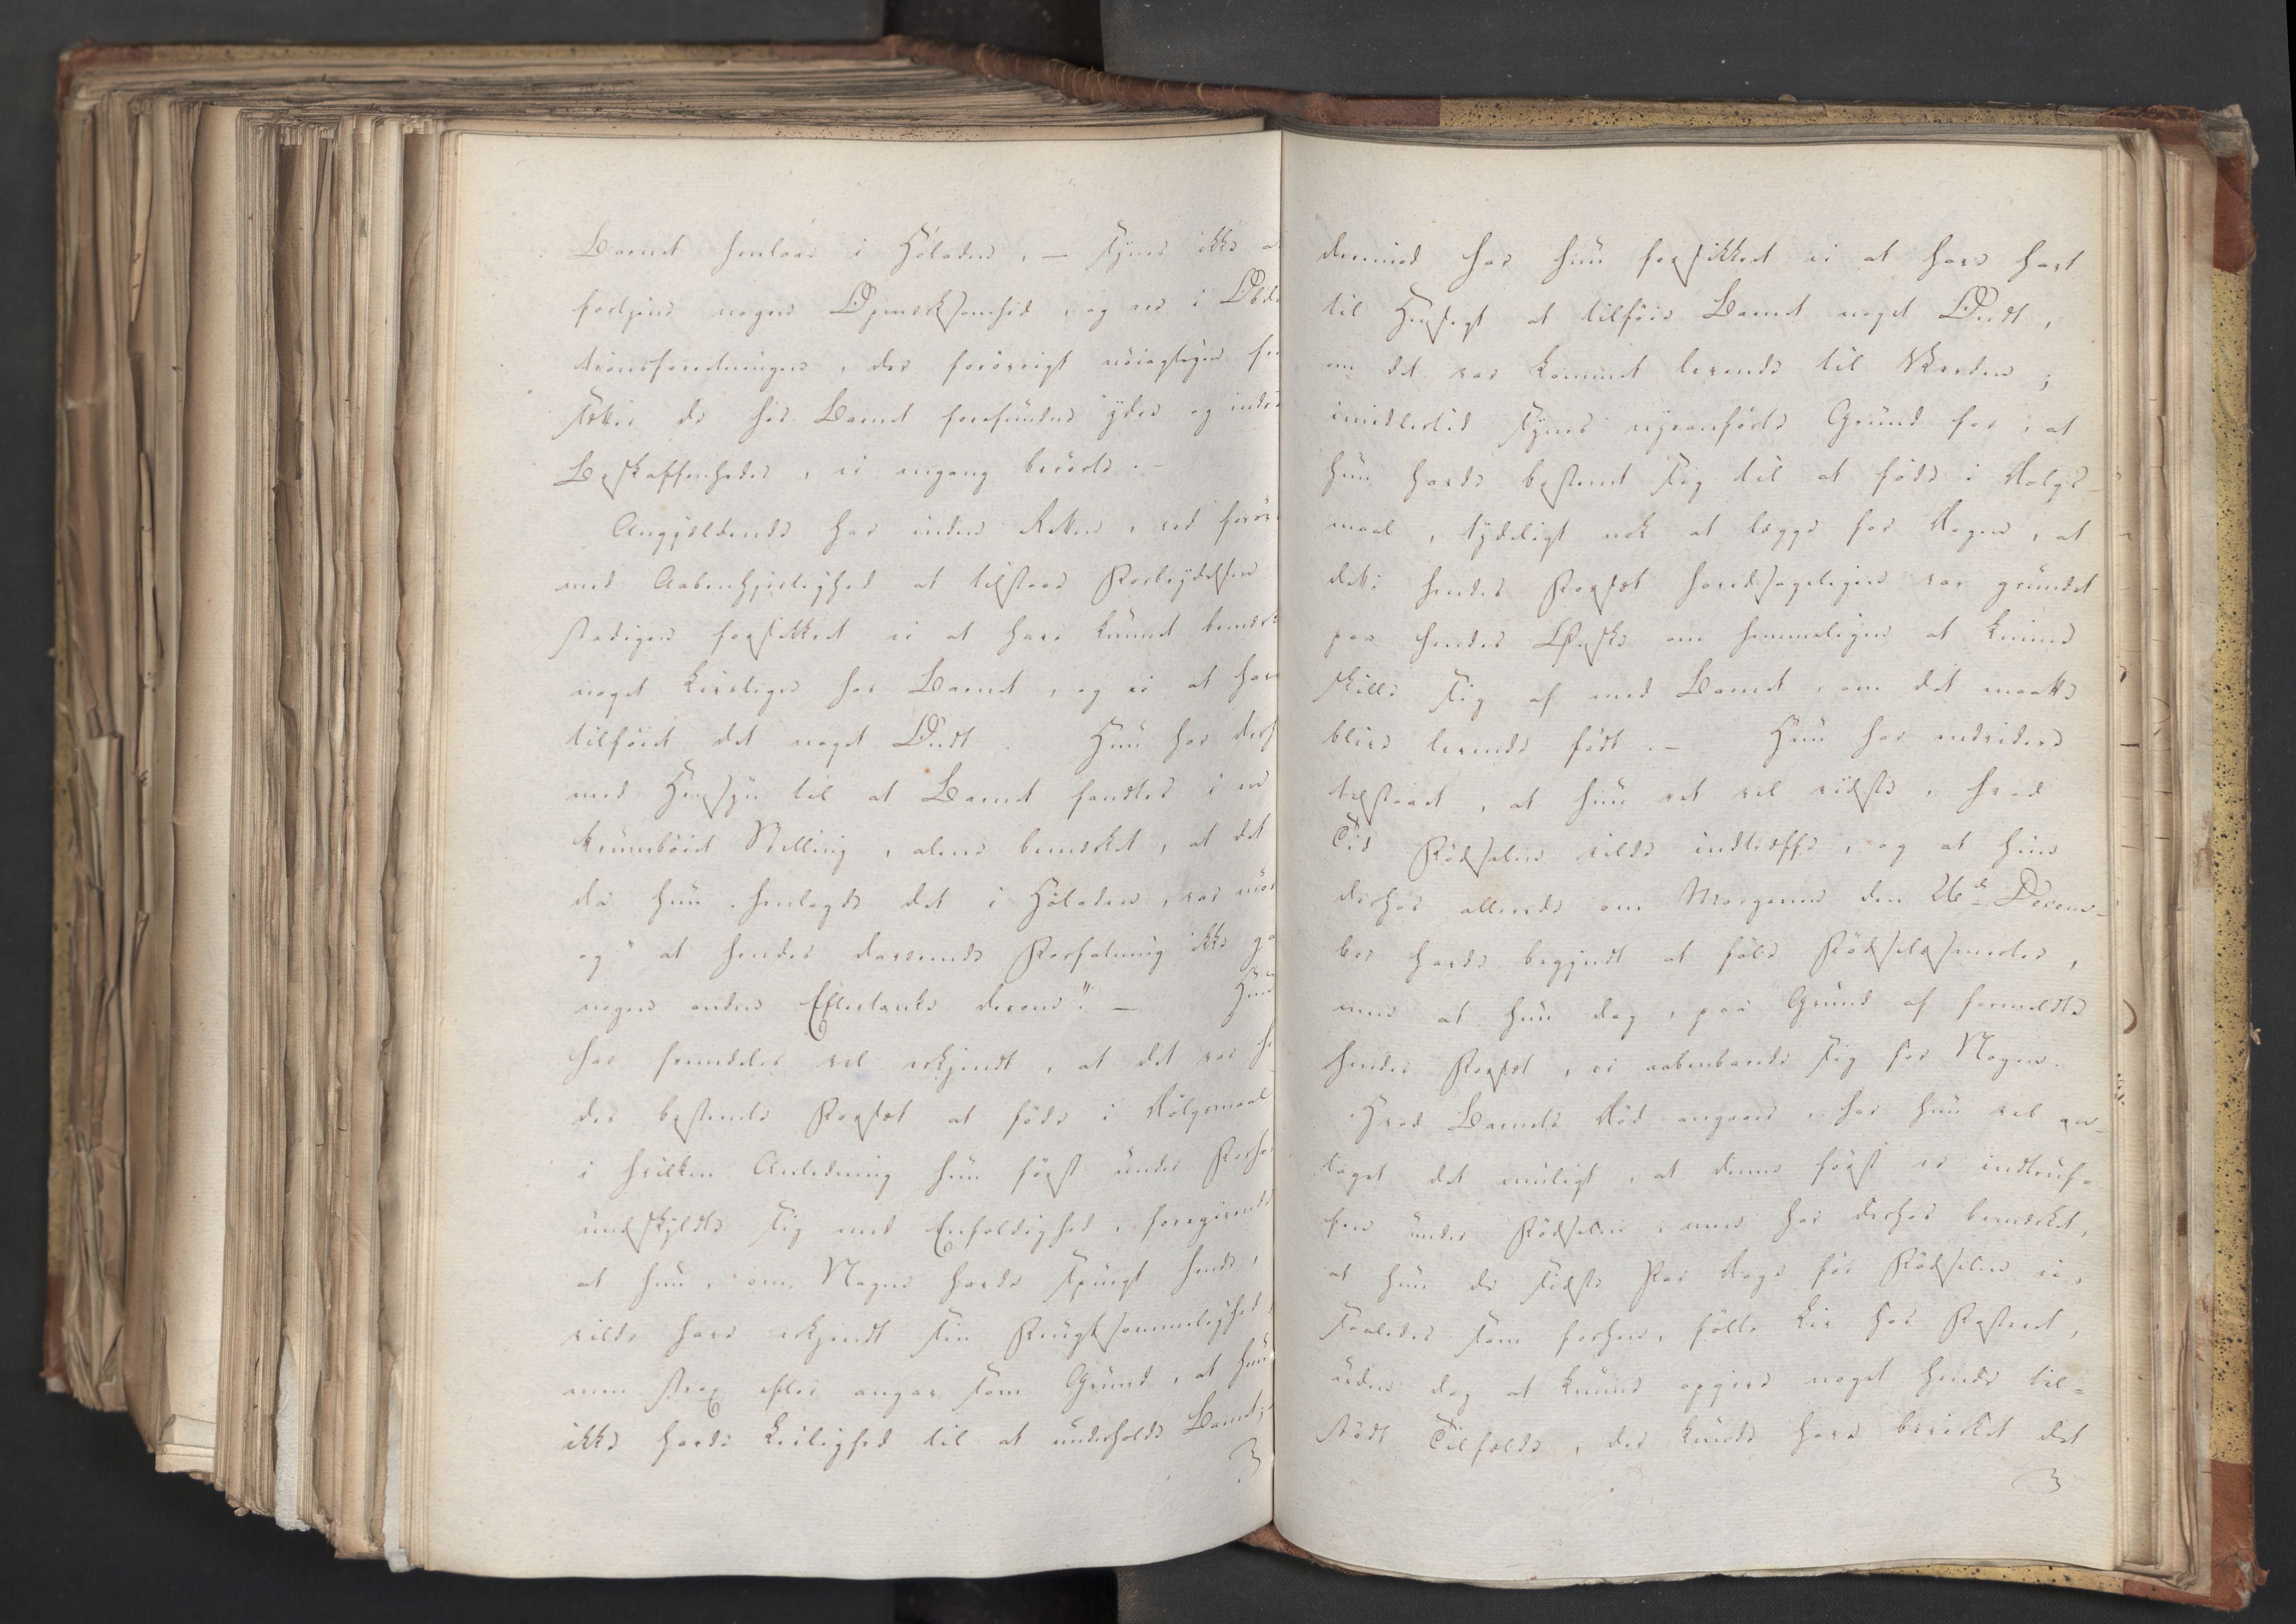 Barnet henlaae i Høladen, — synes ikke a
fortjene nogen Opmærksomhed, og er i Obdu
ctionsforretningen, der forøvrigt nøiagtigen fr
sætter de hos Barnet forefundne ydre og indre
Beskaffenheder, ei engang berørt. —
Angjeldende har inden Retten, ved forøv
med Aabenhjertighed at tilstaae Forbrydelsen
stadigen forsikkret ei at have kunnet bemærk
noget Livstegn hos Barnet, og ei at have
tilføiet det noget Ondt. Hun har derh
med Hensyn til at Barnet fandtes i en
krumbøiet Stilling, alene bemærket, at det
da hun henlagde det i Høladen, var
og" at hendes daværende Forfatning ikke ga
nogen anden Eftertanke derom". — Hun
har fremdeles vel erkjendt, at det var he
des bestemte Forsæt at føde i Dølgsmaal
i hvilken Anledning hun først under Forhør
undskyldte sig med Enfoldighed, foregivende
at hun, om Nogen havde spurgt hende,
vilde have erkjendt sin Frugtsommelighed,
men strax efter angav som Grund, at hun
ikke havde Leilighed til at underholde Barnet;
derimod har hun forsikkret ei at have havt
til Hensigt at tilføie Barnet noget Ondt,
om det var kommet levende til Verden;
imidlertid synes nysanførte Grund for, at
hun havde bestemt sig til at føde i Dølgs-
maal, tydeligt nok at lægge for Dagen, at
dette hendes Forsæt hovedsageligen var grundet
paa hendes Ønske om hemmeligen at kunne
skille sig af med Barnet, om det maatte
blive levende født. — Hun har endvidere
tilstaaet, at hun ret vel vidste, hvad
Tid Fødselen vilde indtræffe, og at hun
derhos allerede om Morgenen den 26de Decem-
ber havde begyndt at føle Fødselssmerter,
men at hun dog, paa Grund af formeldte
hendes Forsæt, ei aabenbarede sig for Nogen.
Hvad Barnets Død angaaer, har hun vel an-
taget det muligt, at denne først er indtruf-
fen under Fødselen, men har derhos bemærket,
at hun de sidste Par Dage før Fødselen ei,
saaledes som forhen, følte Liv hos Fosteret,
uden dog at kunne opgive noget hende til-
stødt Tilfælde, der kunde have bevirket det